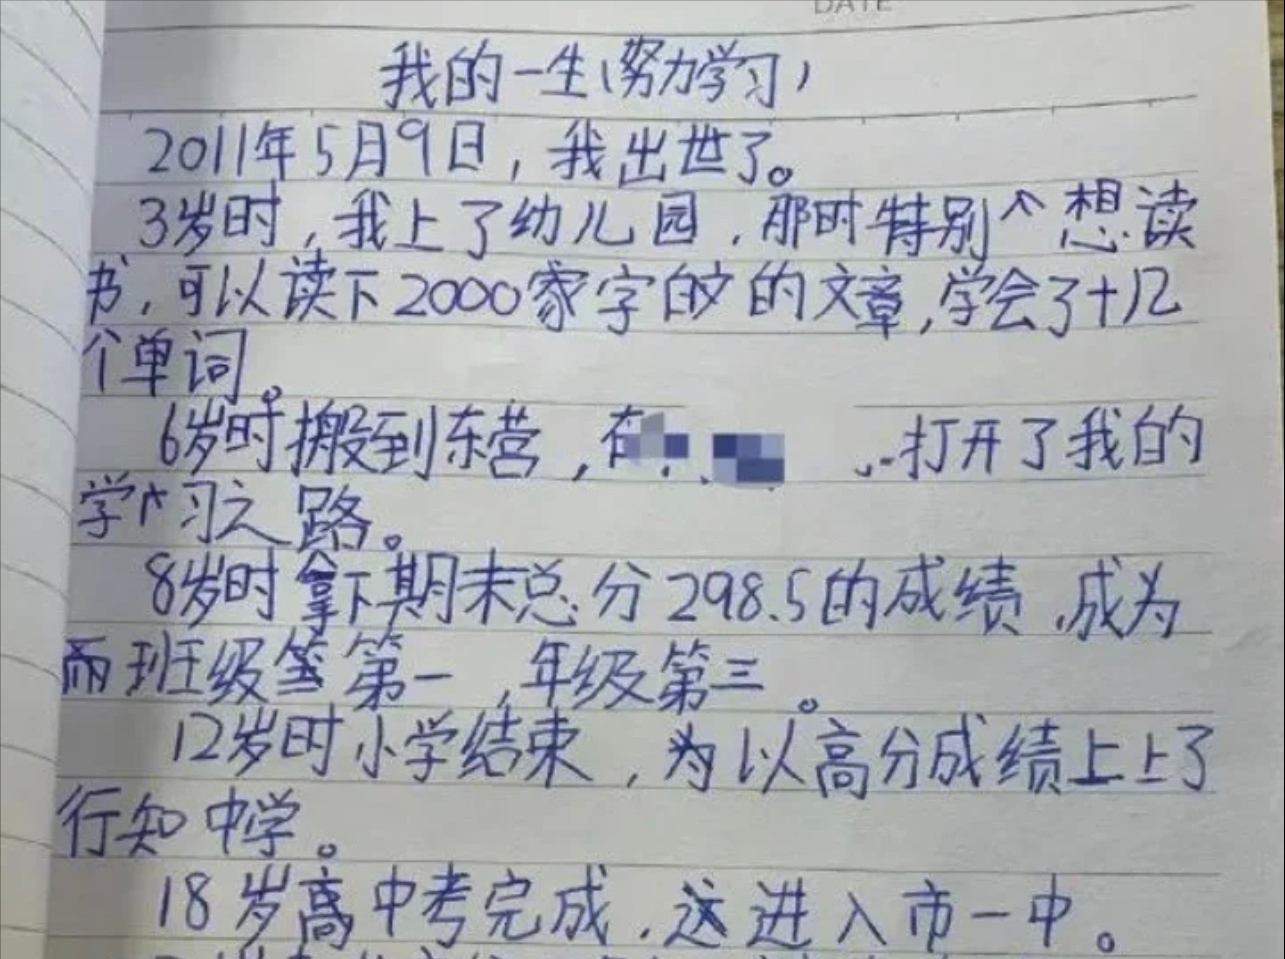 DATE
我的一生(努力学习)
2011年5月9日,我出世了。
3岁时,我上了幼儿园,那时特别个想读
书,可以读下2000家字的的文章,学会了十几
个单词。
6岁时搬到东营,在 打开了我的
学习之路。
8岁时拿下期末总分298.5的成绩,成为
而班级第一,年级第三。
12岁时小学结束,为以高分成绩上上了
行知中学。
18岁高中考完成,这进入市一中。